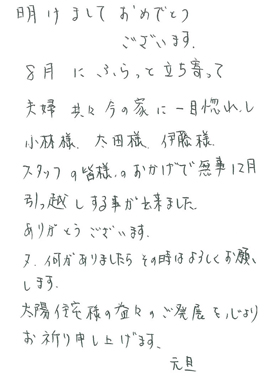 明けまして おめでとう
ございます.
8月 に ふらっと 立ち寄って
夫婦 共々 今の家に 一目惚れ.し
小林様、太田様、伊藤様.
スタッフ の皆様.のおかげで無事12月
引っ越し する事が出来ました
ありがとう ございます.
又.何かありましたら その時はよろしくお願い
します.
太陽住宅様の益々のご発展を心より
お祈り申し上げます、
元旦